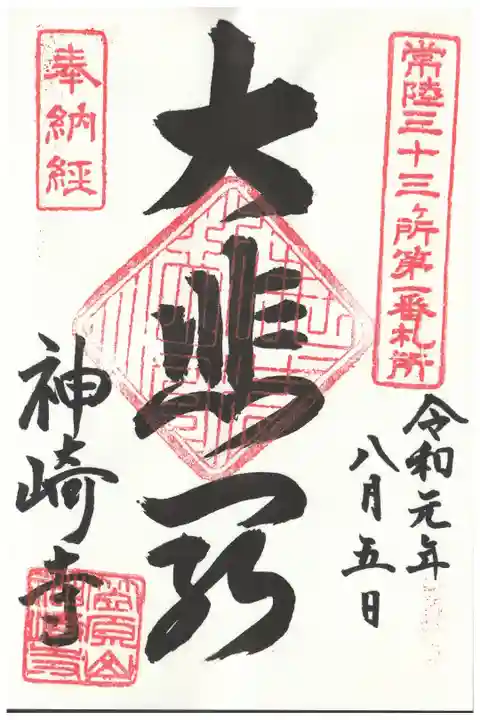 常陸三十三ヶ所第一番札所
令和元年
八月五日
奉納経
大悲閣
神崎寺
笠原山
神崎寺